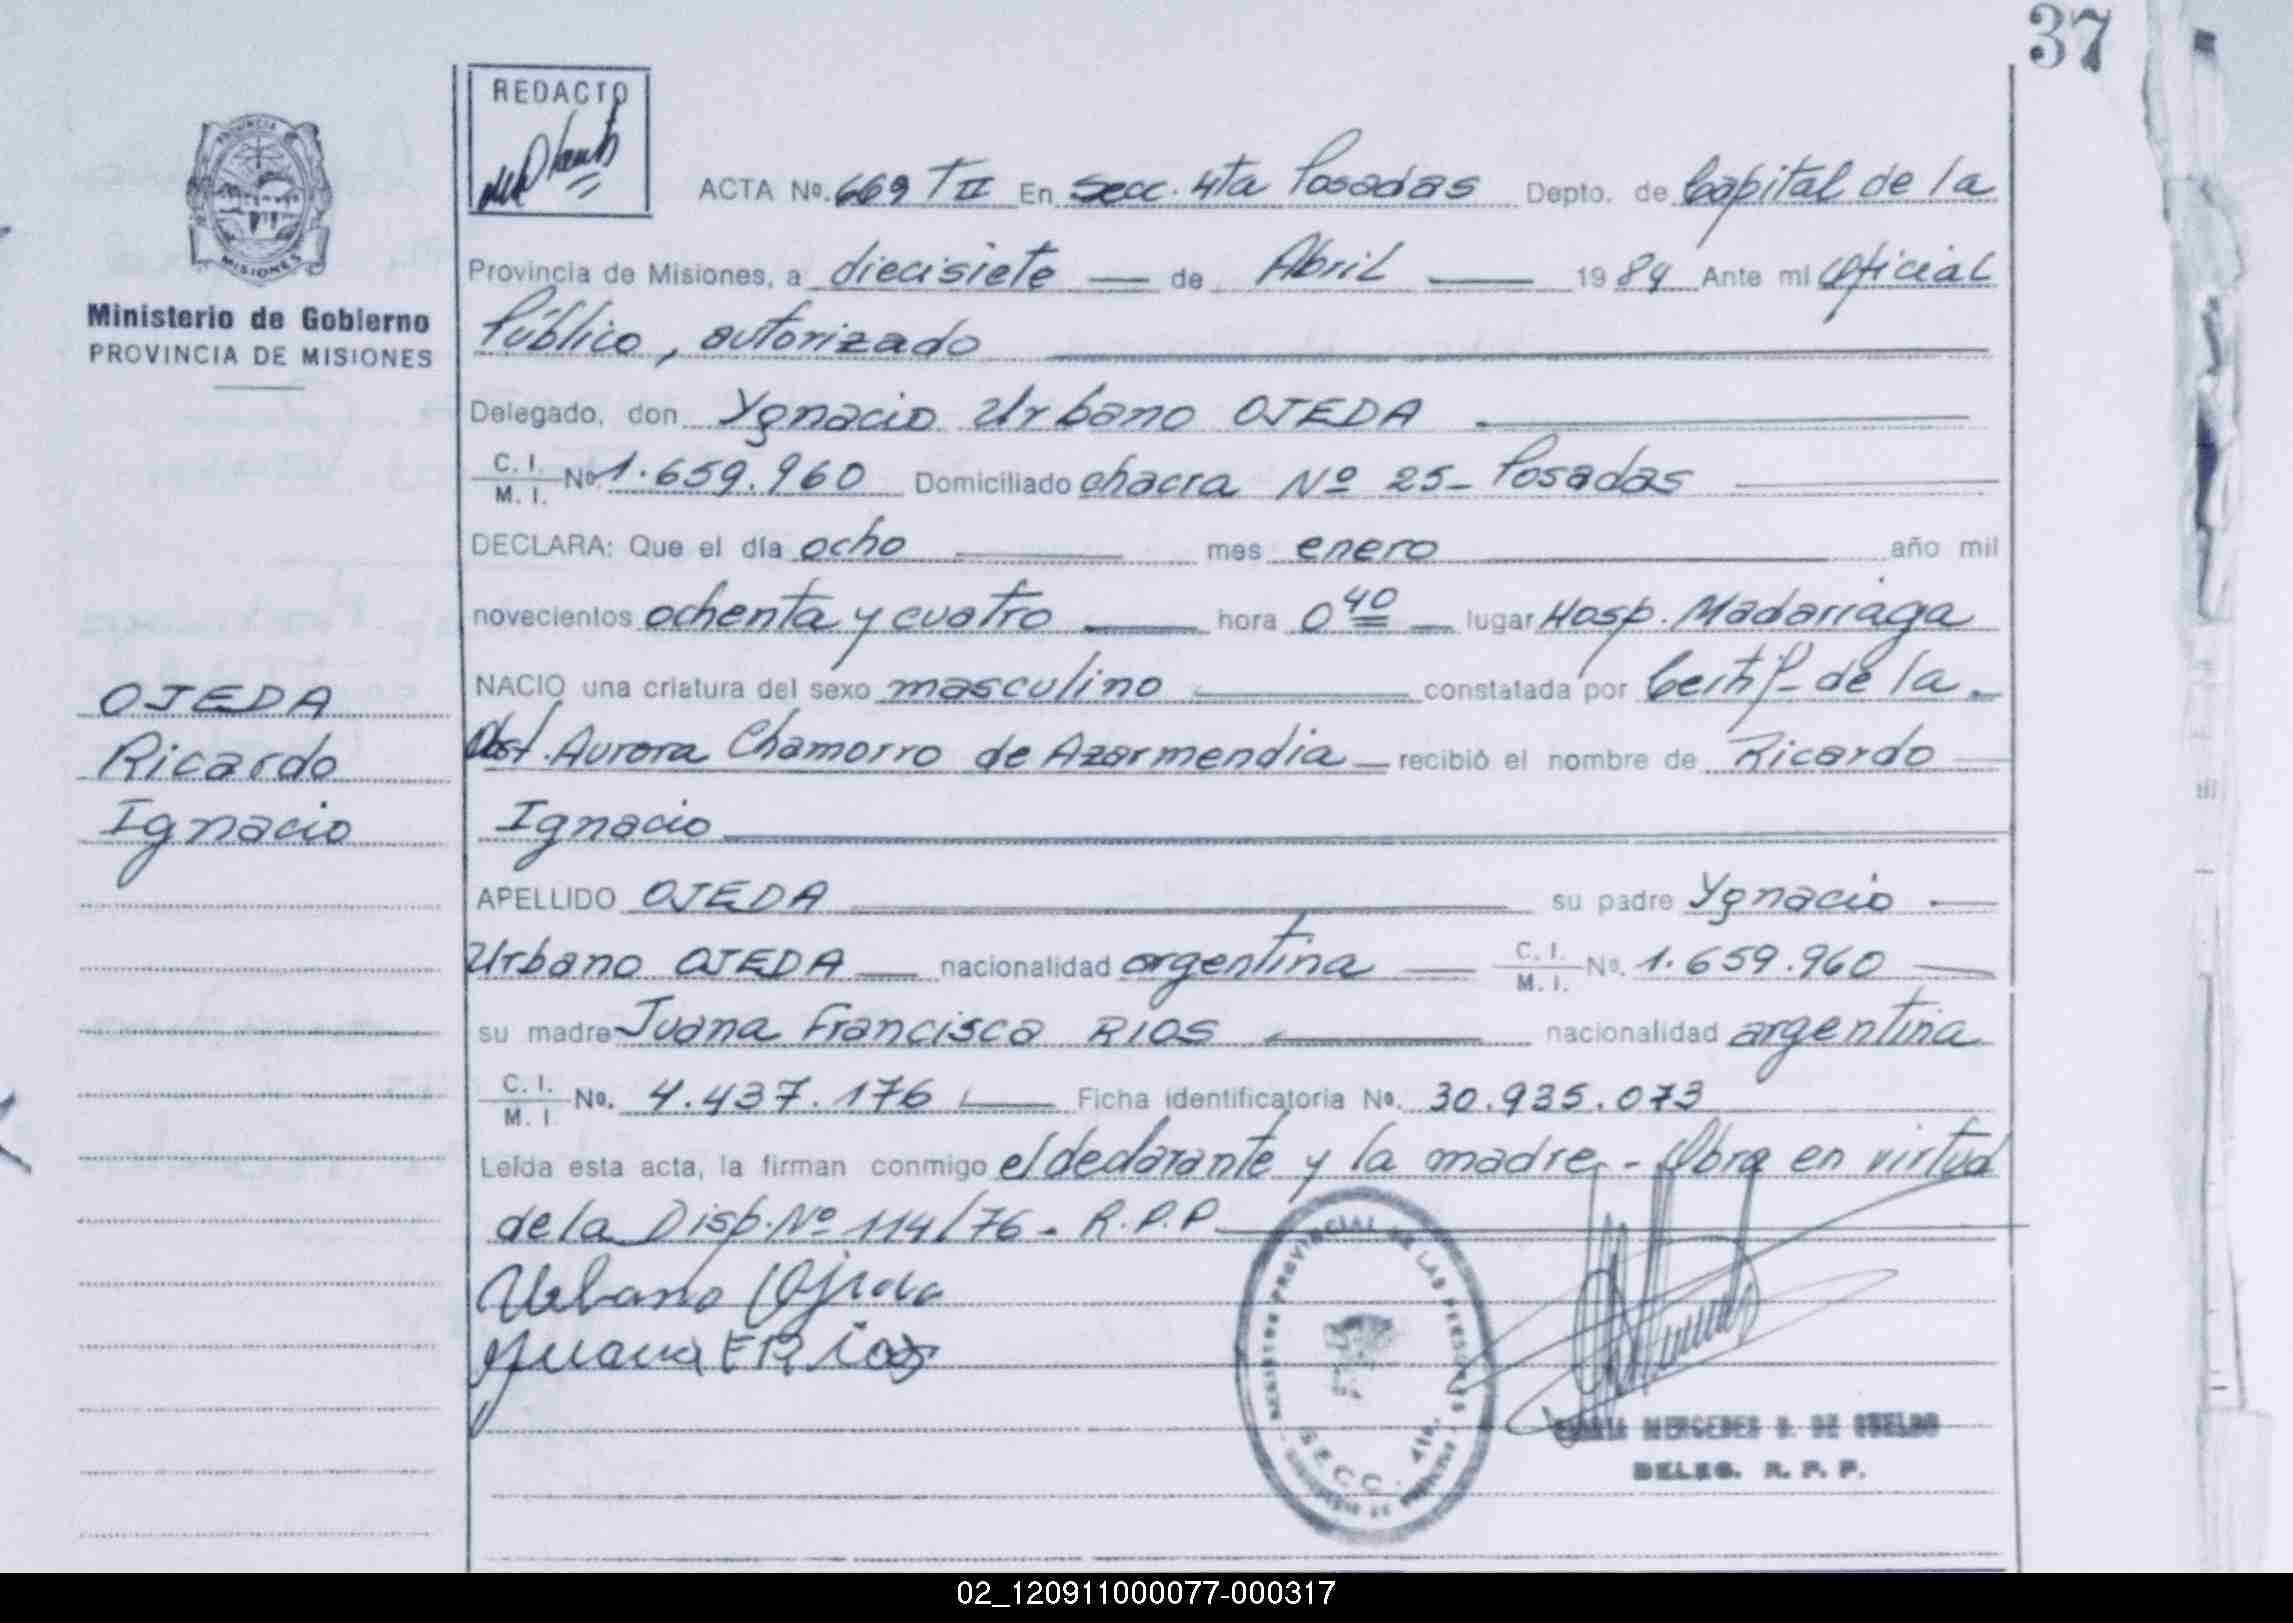 37
REDACTO
ACTA No. 669 T II En Secc. 4ta Posadas Depto. de Capital de la
Provincia de Misiones, a diecisiete de Abril 1984 Ante mi Oficial
Público, autorizado
Delegado, don Ygnacio Urbano OJEDA
C. I. M. I. No 1.659.960 Domiciliado chacra Nº 25- Posadas
DECLARA: Que el día ocho mes enero año mil
novecientos ochenta y cuatro hora 0 40 lugar Hosp. Madariaga
NACIO una criatura del sexo masculino constatada por Certif. de la
Obst. Aurora Chamorro de Azarmendia recibió el nombre de Ricardo
Ignacio
APELLIDO OJEDA su padre Ygnacio
Urbano OJEDA nacionalidad argentina C. I. M. I. No. 1.659.960
su madre Juana Francisca RIOS nacionalidad argentina
C. I. M. I No. 4.437.176 Ficha identificatoria No. 30.935.073
Leída esta acta, la firman conmigo el declarante y la madre.- Obra en virtud
de la Disp. Nº 114/76. R.P.P.
Urbano Ojeda
Juana F R ios
PROVINCIA
MISIONES
Ministerio de Gobierno
PROVINCIA DE MISIONES
OJEDA
Ricardo
Ignacio
REGISTRO PROVINCIAL DE LAS PERSONAS
SECC. 4ta.
MERCEDES
DELEG. R. P. P.
02_120911000077-000317